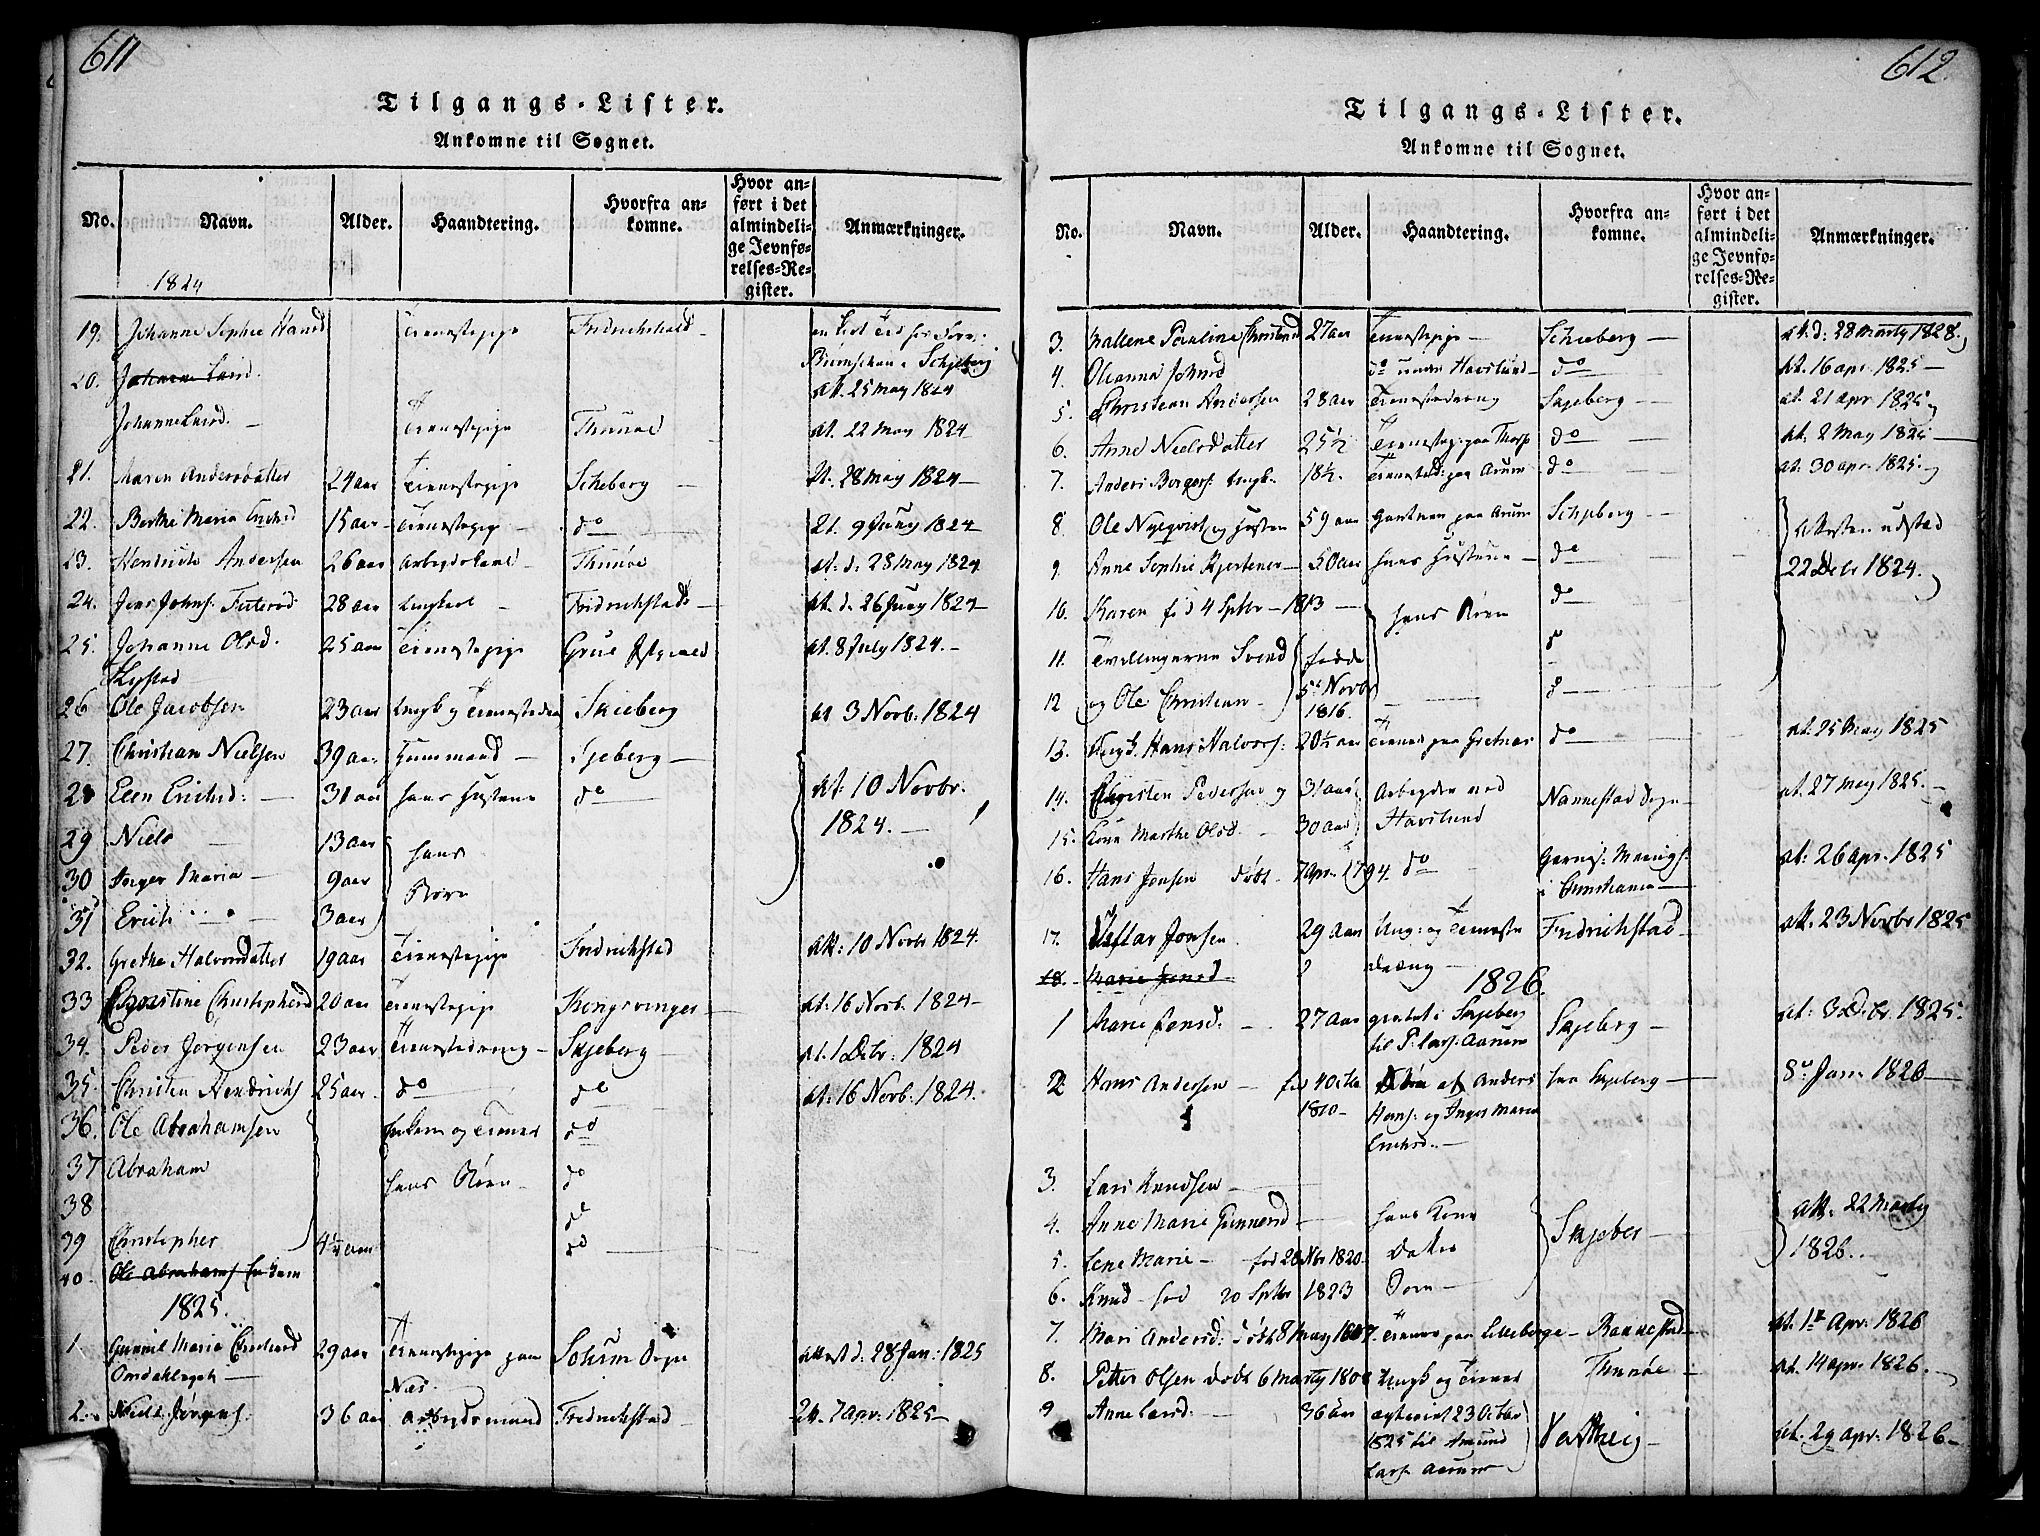 611
Tilgangs-Lister.
Ankomne til Sognet.
No. Navn. Alder. Haandtering. Hvorfra an-
komne. Hvor an-
ført i det
almindeli-
ge Jevnfø-
relses-Re-
gister. Anmærkninger.
1824
19. Johanne Sophie Hansd Tienestepige Fridrichshald
20. Johanne Larsd.
at. 25 May 1824
Johanne Larsd. Tienestepige Thunøe at. 22 May 1824
21. Maren Andersdatter 24 aar Tienestepige Scheberg at. 28 May 1824
22. Berthe Maria Erichsd 15 aar Tienestepige do at. 9 Juny 1824
23. Hendrich Andersen 26 aar Arbeydskarl Thunøe at. d. 28 May 1824
24. Jens Johns. 28 aar Ungkarl Fridrichstad at. d. 26 Juny 1824
25. Johanne Olsd. 25 aar Tienestepige Grue at. 8 July 1824.
26 Ole Jacobsen 23 aar Ungk og Tienestedr Skieberg at 3 Novb. 1824
27. Christian Nielsen 39 aar Huusmand Sjeberg
28 Elen Erichsd. 31 aar hans Hustrue do at. 10 Novbr.
1824.
29 Niels 13 aar hans
Børn
30 Inger Maria 9 aar
31 Erich 3 aar
32. Grethe Halvorsdatter 19 aar Tienestepige Fredrichstad att: 10 Novbr 1824.
33 Christine Christophersd 20 aar Tienestepige Kongsvinger at. 16 Novb. 1824
34. Peder Jørgensen 23 aar Tienestedreng Skjeberg at. 1 Debr. 1824
35. Christen Hendrichs 25 aar do do at. 16 Novb. 1824.
36. Ole Abrahamsen Enkem og Tienes do
37 Abraham hans Børn do
38 do
39 Christopher 4½ aar do
40. Ole Abrahams Enkem
1825.
1 Gunnil Maria 29 aar Tienestepige paa
Næs. Sogn attest d. 28 Jan: 1825
2. Niels Jørgens. 36 aar arbeydsmand Fredrichstad at. 7 apr: 1825
612
Tilgangs-Lister.
Ankomne til Sognet.
No. Navn. Alder. Haandtering. Hvorfra an-
komne. Hvor an-
ført i det
almindeli-
ge Jevnfø-
relses-Re-
gister. Anmærkninger.
3. Pauline 27 aar Tienestepige Schieberg at. d. 28 Marty 1828.
4. Oleanna Johnsd do under Hafslund do at. 16 apr. 1825
5. Christian Andersen 28 aar Tienestedreng Skjeberg at. 21 apr. 1825
6. Anne Nielsdatter 25½ Tienestep: paa Thorp do at. 2 May 1825
7. Anders Borgers. Ungk. 18½. Tienested: paa Arum do at. 30 apr. 1825.
8. Ole Nyqvist og Hustru 59 aar paa Arum Schjeberg attesten udstæd
22 Debr 1824.
9. Anne Sophie 50 aar hans Hustrue do
10. Karen fød 4 Sptbr 1813 hans Børn do
11. Tvillingerne Svend fødde
5te Novbr
1816. do
12 og Ole Christian do
13. Ungk. Hans Halvors: 20½ aar Tienes paa do at. 25 May 1825
14. Christen Pedersen og 31 aar Arbeyder ved
Hafslund Nannestad Sogn at. 27 May 1825.
15. Kone Marthe Olsd. 30 aar
16. Hans Jensen døbt 7 apr. 1794. do Garnis: Menigh:
i Christiania at: 26 apr. 1825
17. Jonsen 29 aar Ung: og Tieneste
dreng Fridrichstad att. 23 Novbr 1825
18. Marie Jensd
1826.
1 Marie Jensd. 27 aar i Skjeberg
til P: Lars: Aarum Skjeberg at: 3 Debr. 1825.
2 Hans Andersen fød 4 Octbr
1810 Søn af Anders
Hans: og Inger Maria
Erichsd. fra Skjeberg 8de Jan: 1826
3. Lars Knudsen
4. Anne Marie Gunnersd hans Kone Skjeber att. 22 Marty
1826.
5. Lene Marie fød 28 Nbr 1820 Datter
6. Knud fød 20 Sptbr 1823 Søn
7. Mari Andersd: døbt 8 May 1807. Tienes paa Lilleborge Bannestad at. 1te Apr. 1826
8. Petter Olsen døbt 6 Marty 1808 Ungk og Tienes Thunøe at. 14 apr. 1826.
9 Anne Larsd: 36 aar egteviet 23 October
1825 til Amund
Lars. Aarum at. 29 apr. 1826